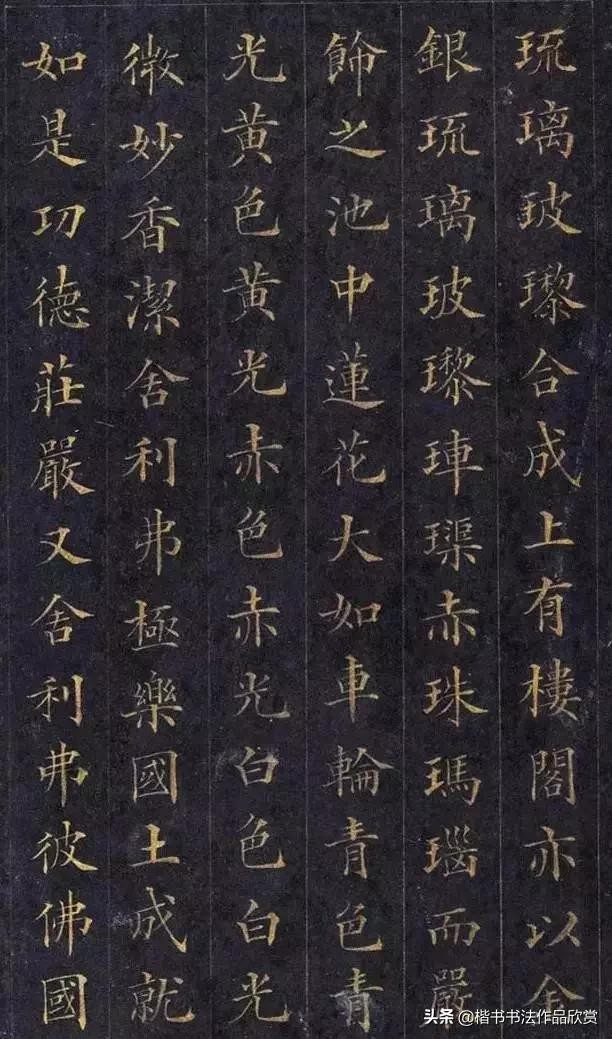 琉璃玻瓈合成上有樓閣亦以金
銀琉璃玻瓈硨璖赤珠瑪瑙而嚴
飾之池中蓮花大如車輪青色青
光黃色黃光赤色赤光白色白光
微妙香潔舍利弗極樂國土成就
如是功德莊嚴又舍利弗彼佛國
头条 @楷书书法作品欣赏